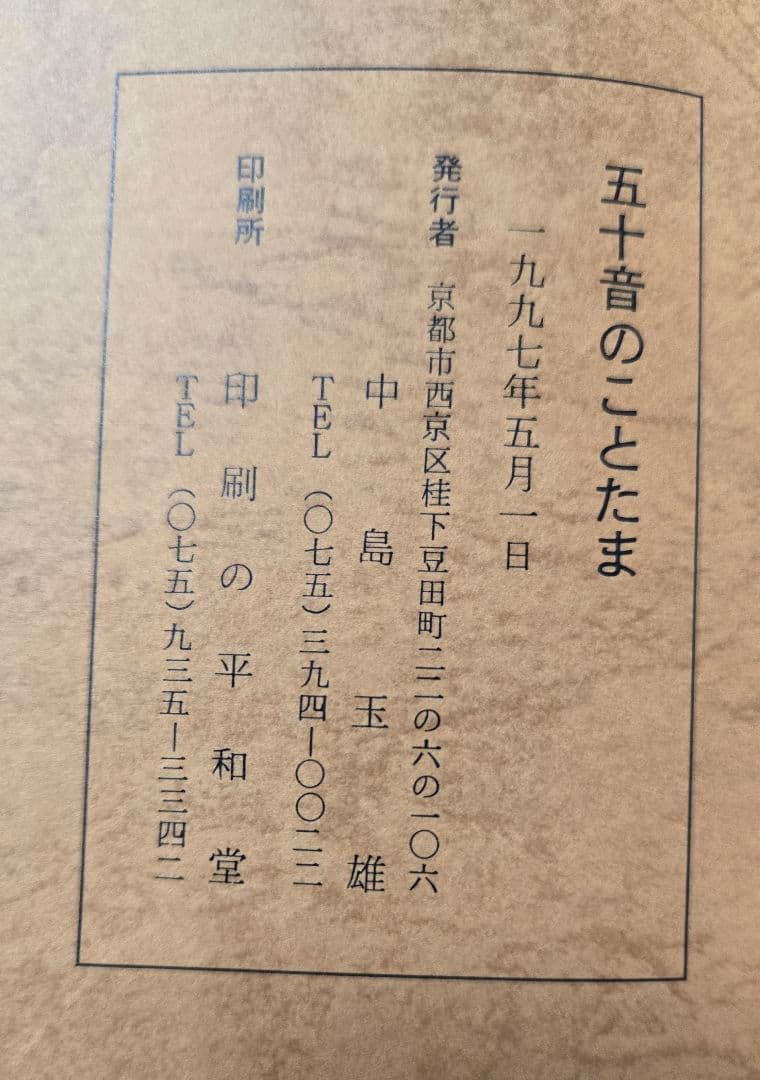 五十音のことたま
一九九七年五月一日
発行者 京都市西京区桂下豆田町二二の六の一〇六
中島玉雄
TEL (〇七五)三九四ー〇〇二二
印刷所
印刷の平和堂
TEL (〇七五)九三五ー三三四二